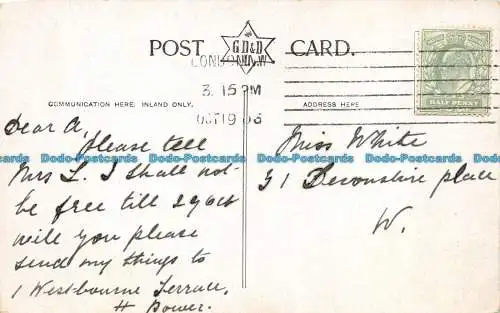 POST CARD.
G.D.&D.
LONDON.W
3.15PM
OCT 19 06
COMMUNICATION HERE. INLAND ONLY.
ADDRESS HERE.
HALF PENNY
Dear A,
Please tell
Mrs L. I shall not
be free till 29 Oct
will you please
send my things to
1 Westbourne Terrace,
H Bower.
Miss White
31 Devonshire place
W.
Dodo-Postcards Dodo-Postcards Dodo-Postcards Dodo-Postcards Dodo-Postcards